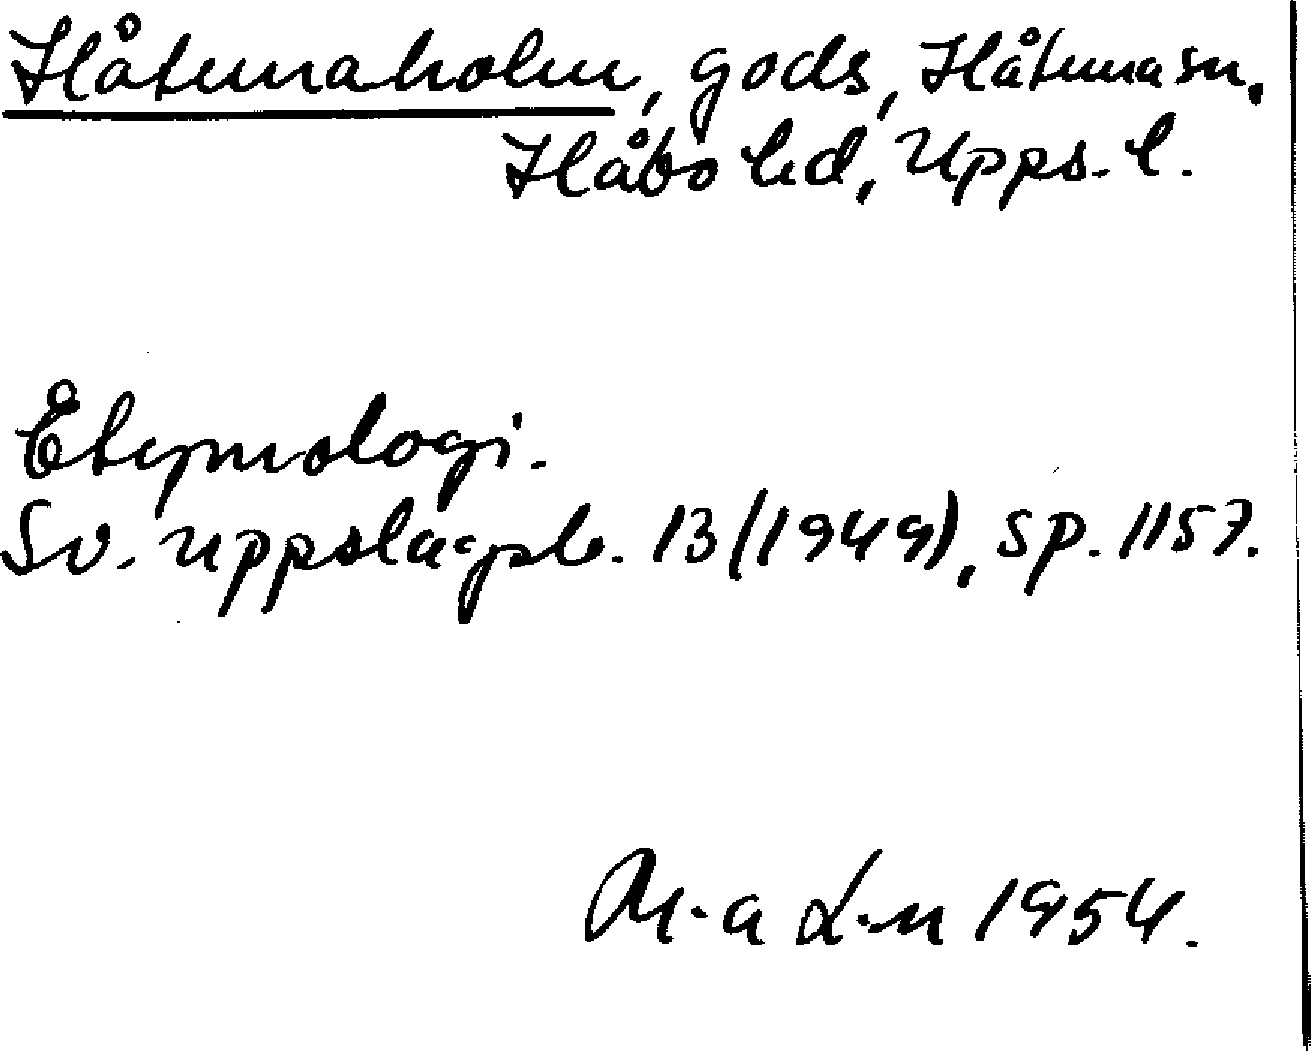 Håtunaholm, gods, Håtuna sn,
Håbo hd, Upps. l.
Etymologi.
Sv. uppslagsb. 13 (1949), sp. 1157.
M-a L-n 1954.